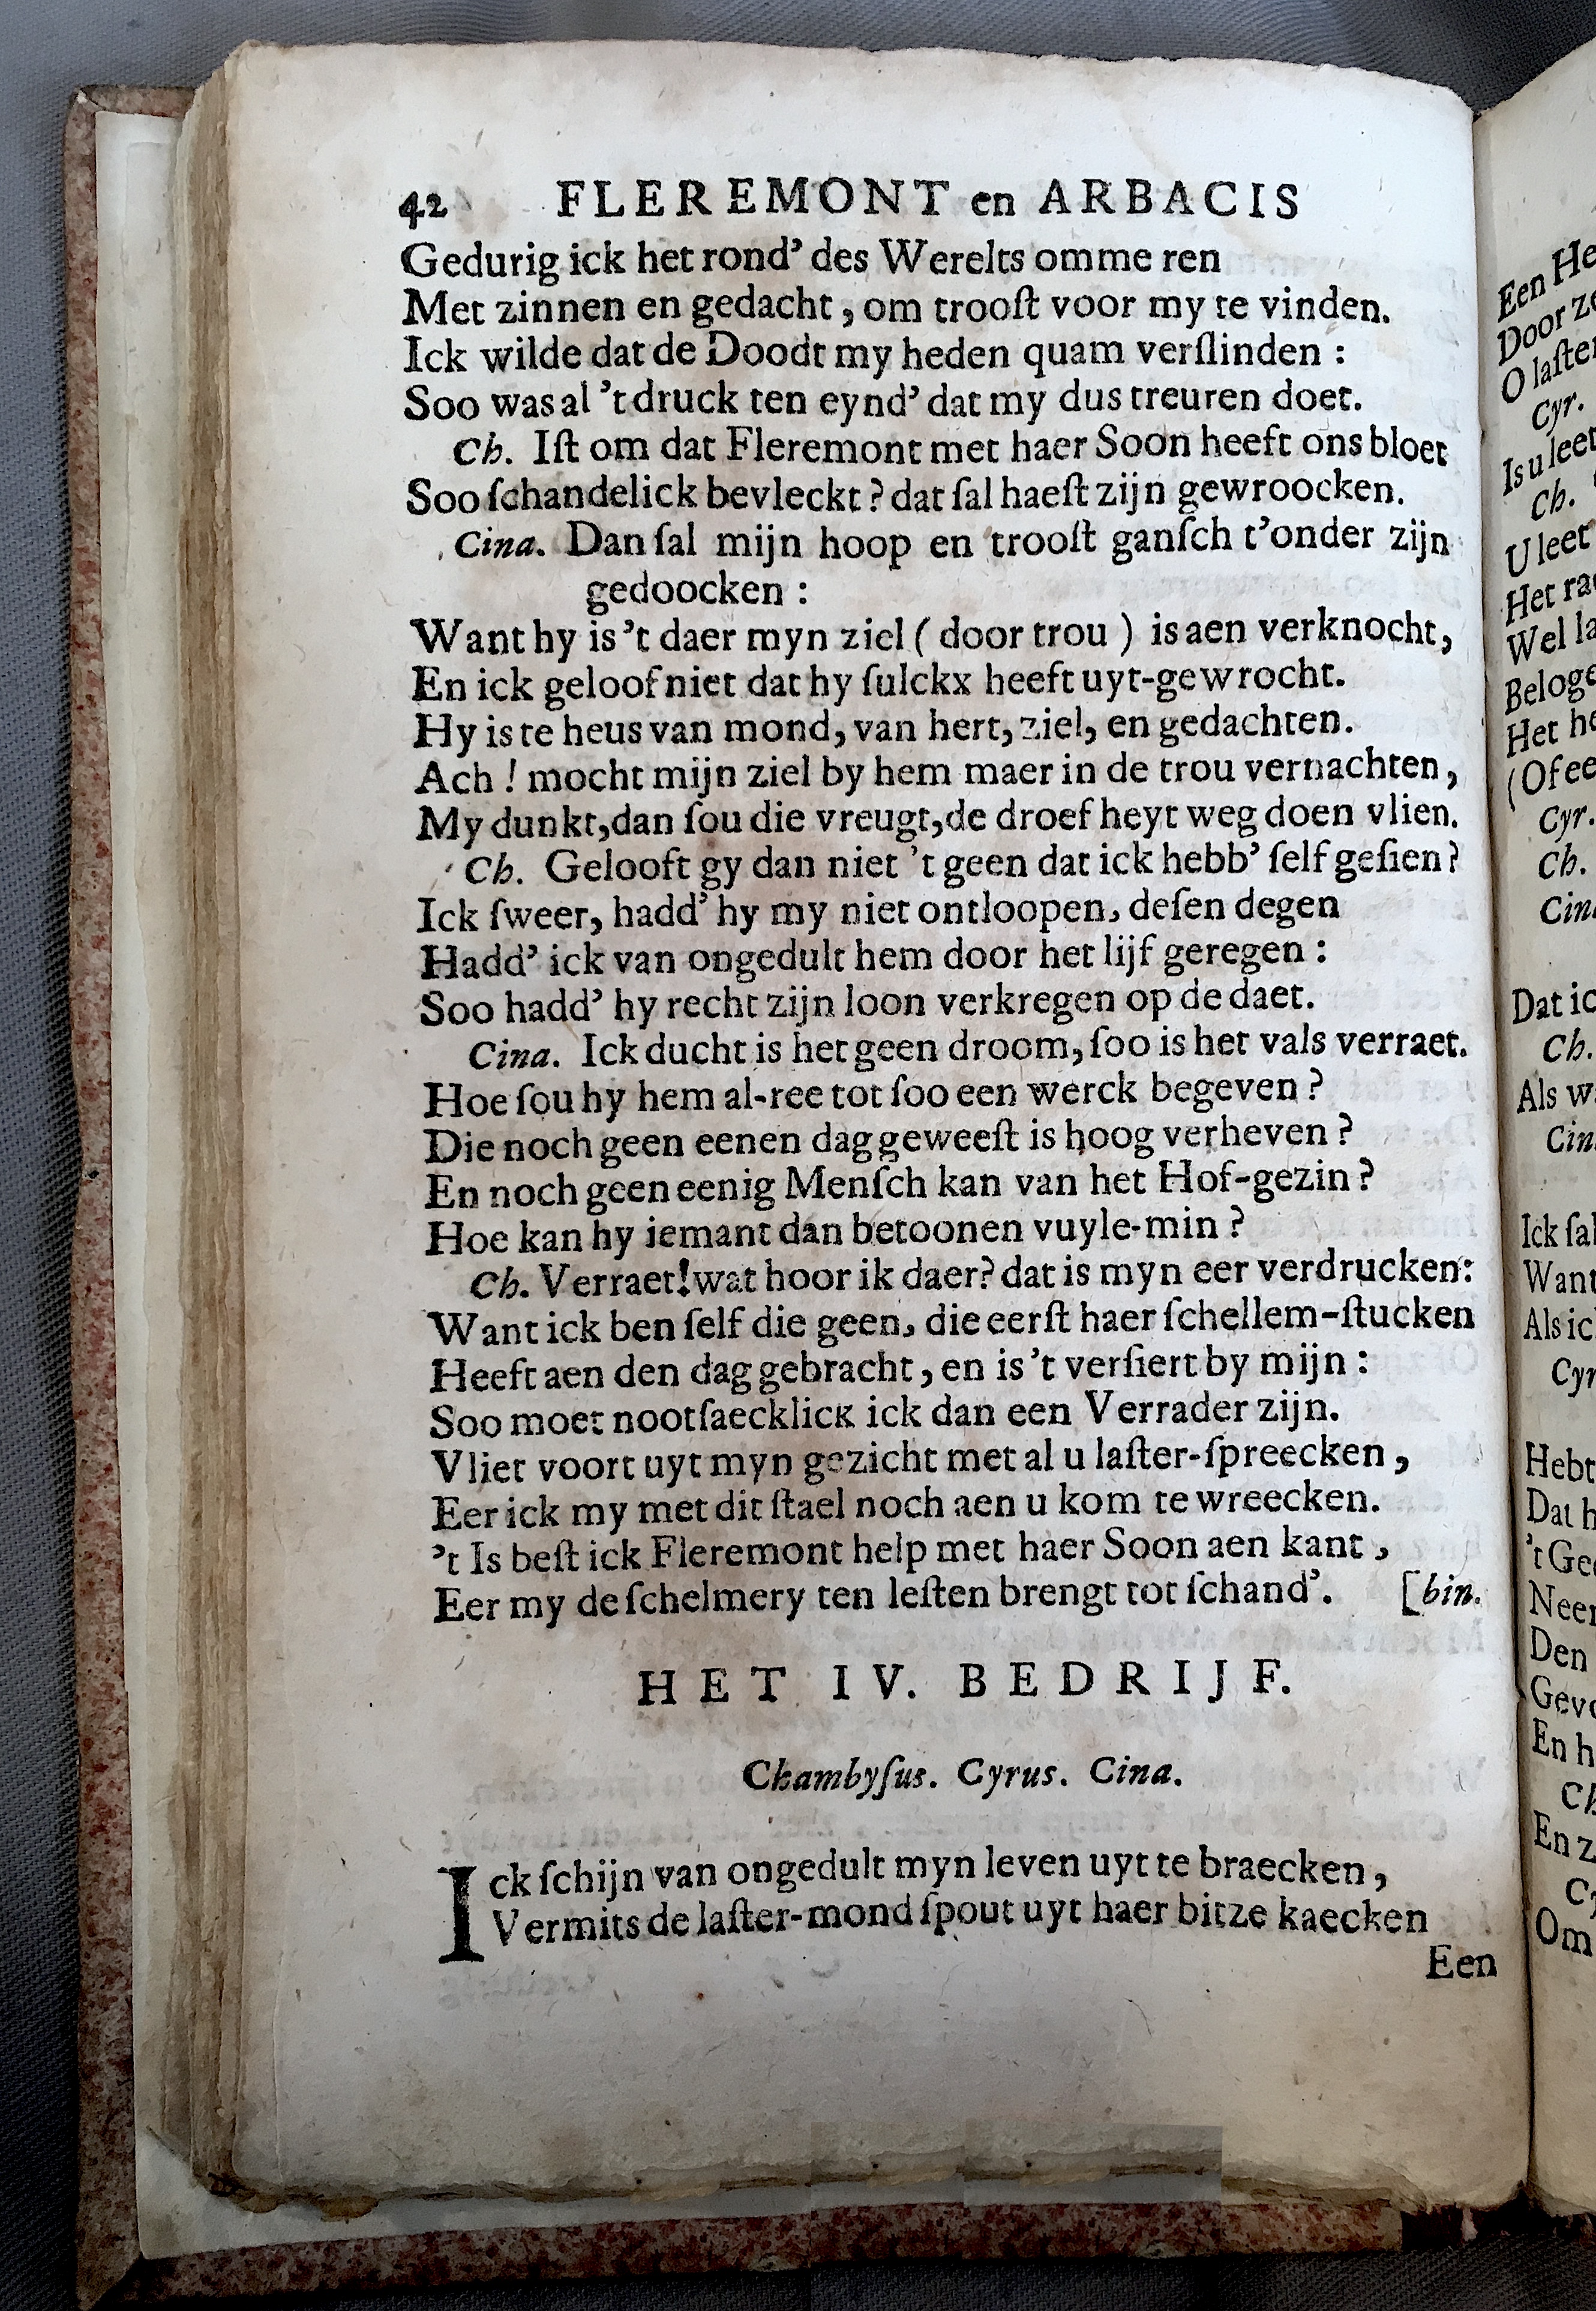 42 FLEREMONT en ARBACIS
Gedurig ick het rond' des Werelts omme ren
Met zinnen en gedacht, om trooſt voor my te vinden.
Ick wilde dat de Doodt my heden quam verſlinden :
Soo was al 't druck ten eynd' dat my dus treuren doet.
Ch. Iſt om dat Fleremont met haer Soon heeft ons bloet
Soo ſchandelick bevleckt? dat ſal haeſt zijn gewroocken.
Cina. Dan ſal mijn hoop en trooſt ganſch t'onder zijn
gedoocken :
Want hy is 't daer myn ziel ( door trou ) is aen verknocht,
En ick geloof niet dat hy ſulckx heeft uyt-gewrocht.
Hy is te heus van mond, van hert, ziel, en gedachten.
Ach ! mocht mijn ziel by hem maer in de trou vernachten,
My dunkt, dan ſou die vreugt, de droef heyt weg doen vlien.
Ch. Gelooft gy dan niet 't geen dat ick hebb' ſelf geſien?
Ick ſweer, hadd' hy my niet ontloopen, deſen degen
Hadd' ick van ongedult hem door het lijf geregen :
Soo hadd' hy recht zijn loon verkregen op de daet.
Cina. Ick ducht is het geen droom, ſoo is het vals verraet.
Hoe ſou hy hem al-ree tot ſoo een werck begeven ?
Die noch geen eenen dag geweeſt is hoog verheven ?
En noch geen eenig Menſch kan van het Hof-gezin ?
Hoe kan hy iemant dan betoonen vuyle-min ?
Ch. Verraet! wat hoor ik daer? dat is myn eer verdrucken:
Want ick ben ſelf die geen, die eerſt haer ſchellem-ſtucken
Heeft aen den dag gebracht, en is 't verſiert by mijn :
Soo moet nootſaecklick ick dan een Verrader zijn.
Vliet voort uyt myn gezicht met al u laſter-ſpreecken,
Eer ick my met dit ſtael noch aen u kom te wreecken.
't Is beſt ick Fleremont help met haer Soon aen kant,
Eer my de ſchelmery ten leſten brengt tot ſchand'. [bin.
HET IV. BEDRIJF.
Chambyſus. Cyrus. Cina.
Ick ſchijn van ongedult myn leven uyt te braecken,
Vermits de laſter-mond ſpout uyt haer bitze kaecken
Een
Een He
Door ze
O laſte
Cyr.
Is u leet
Ch.
U leet
Het ra
Wel la
Beloge
Het he
(Of ee
Cyr.
Ch.
Cin
Dat ic
Ch.
Als w
Cin
Ick ſal
Want
Als ic
Cyr
Hebt
Dat h
't Ge
Neer
Den
Gev
En h
Ch
En z
Cy
Om